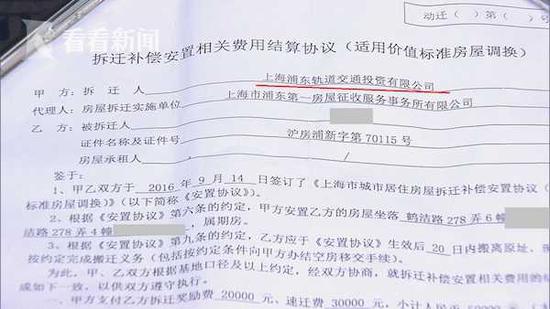 看看新闻
动迁（ ）第（
拆迁补偿安置相关费用结算协议（适用价值标准房屋调换）
甲 方：拆 迁 人 上海浦东轨道交通投资有限公司
代理人：房屋拆迁实施单位 上海市浦东第一房屋征收服务事务所有限公司
乙 方：被拆迁人
证件名称及证件号 沪房浦新字第 70115 号
房屋承租人 /
1、甲乙双方于 2016 年 9 月 14 日签订了《上海市城市居住房屋拆迁补偿安置协议（
标准房屋调换）》（以下简称《安置协议》）。
2、根据《安置协议》第六条的约定，甲方安置乙方的房屋坐落 鹤洁路 278 弄 6 幢
洁路 278 弄 4 幢 ，属期房。
3、根据《安置协议》第九条的约定，乙方应于《安置协议》生效后 20 日内搬离原址，
按约定完成搬迁义务（包括按约定条件向甲方办结空房移交手续）。
为此，甲、乙双方根据基地口径及以上约定，经双方协商，就拆迁补偿安置相关费用的
成如下一致，以供双方遵守执行。
一、甲方支付乙方拆迁奖励费 20000 元、速迁费 30000 元，小计人民币